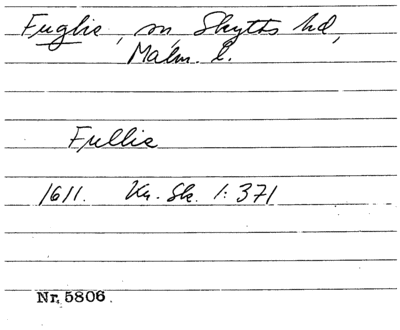 Fuglie, sn, Skytts hd,
Malm. l.
Fullie
1611. Kr. Sk. 1:371
Nr. 5806.